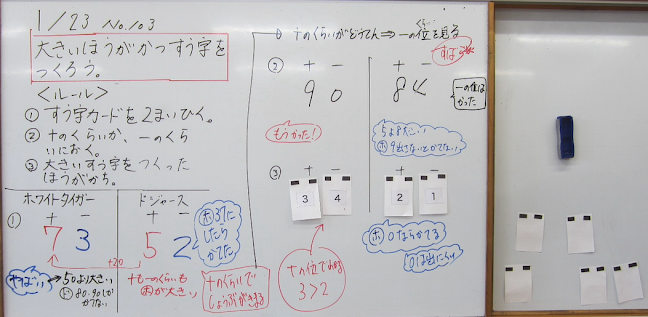 1/23 No.103
大きいほうがかつすう字を
つくろう。
<ルール>
① すう字カードを2まいひく。
② 十のくらいか、一のくら
いにおく。
③ 大きいすう字をつくった
ほうがかち。
ホワイトタイガー
ドジャース
①
十 一
7 3
十 一
5 2
ホ 37に
したら
かてた
+20
やばい
50より大きい
ド 80・90しか
かてない
十も一のくらいも
ホが大きい
十のくらいで
しょうぶがきまる
十のくらいがどうてん⇒一の位を見る
くらい
②
十 一
9 0
十 一
8
一の位は
かった
もうかった!
ホ 9出さないとかてない
③
十 一
3 4
十 一
2 1
十の位でわかる
3>2
ホ 0ならかてる
0は出にくい